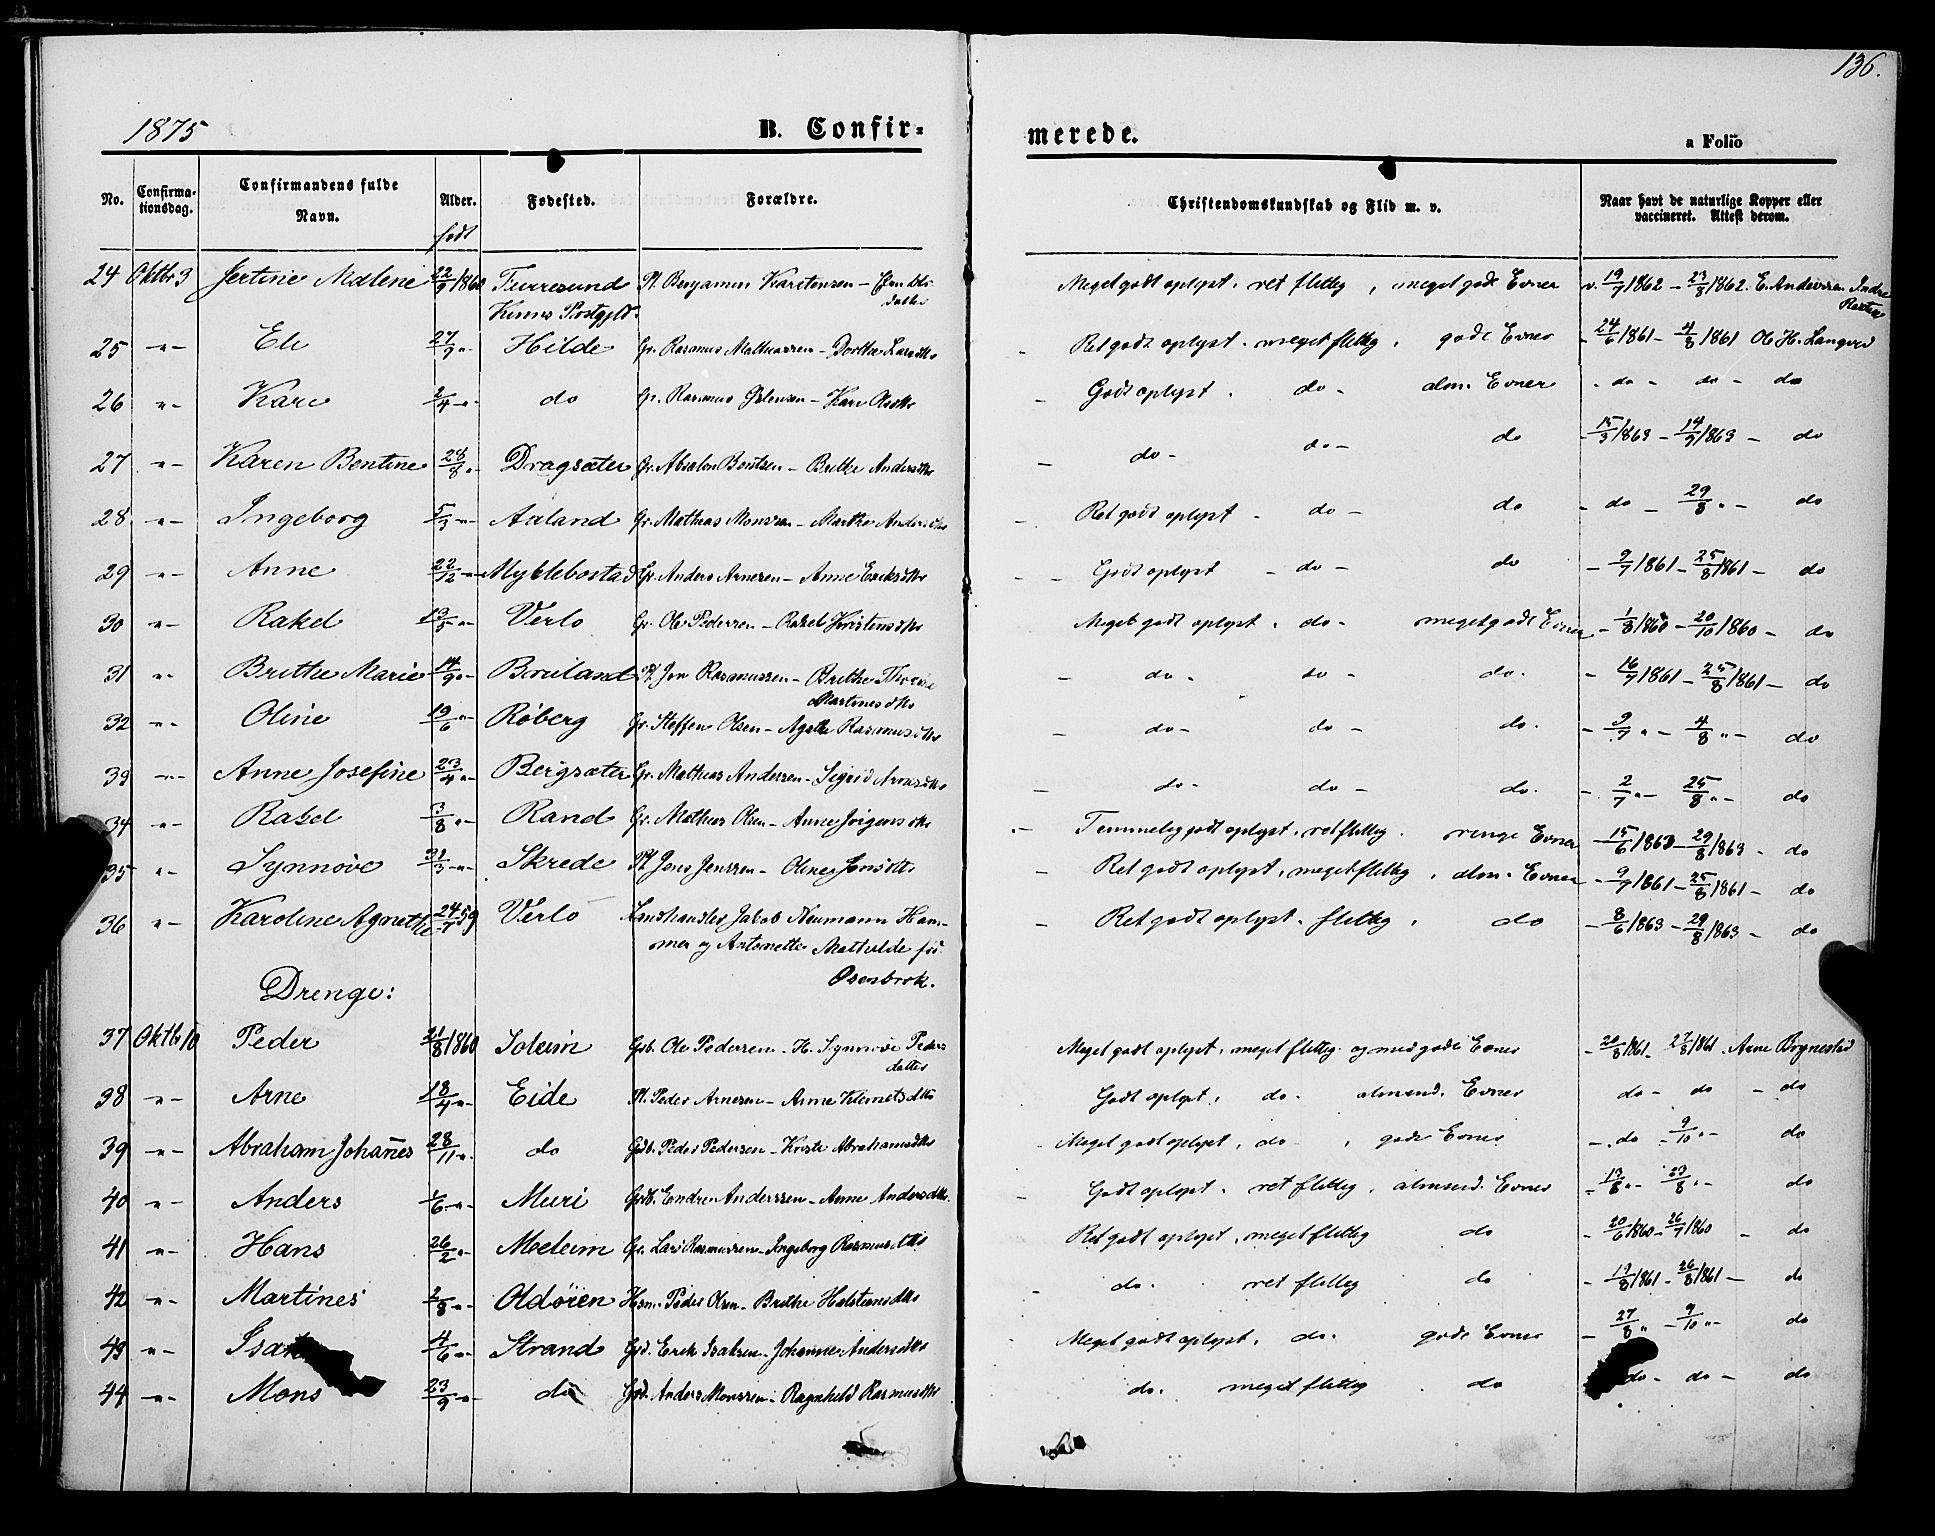 136.
1875 B. Confir- merede. a Folio
No. Confirma-tionsdag. Confirmandens fulde Navn. Alder. Fødested. Forældre. Christendomskundskab og Flid m. v. Naar havt de naturlige Kopper eller vaccineret. Attest derom.
født
24 Oktbr 3 Jertine Malene 22/9 1860 Furresund Pl. Benjamin Karstensen - datter Meget godt oplyst, ret flittig, meget gode Evner v. 19/7 1862 - 23/8 1862. E. Anderssen Indre
Kinns Prstgjld.
25 -"- Eli 27/9 "- Hilde Gr. Rasmus Mathiassen - Dorthe Larsdtr - Ret godt oplyst. meget flittig, gode Evner - 24/6 1861 - 4/8 1861 Ol. H. Langved
26 "- Kari 2/4 -"- do Gr. Rasmus - Kari Olsdtr - Godt oplyst. do - alm. Evner - do - do - do
27 -"- Karen Bentine 28/8 "- Dragsæter Gr. Absalon Bentsen - Brithe Andersdtr - do - do - do - 15/9 1863 - 14/9 1863 - do
28 -"- Ingeborg 5/3 -"- Aaland Gr. Mathias Monssen - Marthe Andersdtr - Ret godt oplyst - do - do - do - 29/8 "- do
29 -"- Anne 22/12 -"- Myklebostad Gr. Anders Arnesen - Anne Eriksdtr - Godt oplyst - do - do - 9/7 1861 - 25/8 1861 - do
30 -"- Rakel 13/5 -"- Verlo Gr. Ole Pederssen - Rakel Kristensdtr Meget godt oplyst. do - meget gode Evner - 1/8 1860 - 20/10 1860 - do
31 "- Brithe Marie 14/9 "- Bruland Pl. Jon Rasmussen - Brithe Thorine - do - do - do. - 16/7 1861 - 25/8 1861 - do
Martinesdtr
32 -"- Oline 19/6 "- Røberg Gr. Steffen Olsen - Agathe Rasmusdtr - do - do - do. - 9/7 "- 4/8 "- do
33 -"- Anne Josefine 23/4 "- Bergsæter Gr. Mathias Anderssen - Sigrid Arnesdtr - do - do - do. - 2/7 "- 25/8 "- do
34 -"- Rakel 3/8 "- Rand Gr. Mathias Olsen - Anne Jørgensdtr - Temmelig godt oplyst. ret flittig. ringe Evner - 15/6 1863 - 29/8 1863 - do
35 "- Synnøve 31/3 -"- Skrede Pl. Jens Jenssen - Oline Jensdtr - Ret godt oplyst, meget flittig, alm. Evner - 9/7 1861 - 25/8 1861 - do
36 "- Karoline Agnethe 24/7 59 Verlo Landhandler Jakob Neumann Ham- - Ret godt oplyst. flittig, do - 8/6 1863 - 29/8 1863 - do
mer og Antonette Mathilde fød
Osenbrok.
Drenge:
37 Oktbr 10 Peder 21/8 1860 Soleim Gsb. Ole Pederssen - H. Synnøve Peders Meget godt oplyst, meget flittig og med gode Evner - 20/8 1861 - 27/8 1861. Arne Brynestad
datter
38 -"- Arne 18/4 "- Eide Pl. Peder Arnesen - Anne Klemetsdtr Godt oplyst, do - almind. Evner do - do - do
39 -"- Abraham Johannes 28/11 -"- do Gdb. Peder Pedersen - Kristi Abrahamsdtr - Meget godt oplyst, do - , gode Evner - do - 9/10 "- do
40 -"- Anders 1/6 -"- Muri Gdb. Endre Anderssen - Anne Andersdtr. - Godt oplyst. ret flittig, almind. Evner - 13/8 "- 23/8 "- do
41 -"- Hans 26/2 "- Meleim Gr. Lars Rasmussen - Ingeborg Rasmusdtr Ret godt oplyst, meget flittig do - 20/6 1860 - 26/7 1860 - do
42 -"- Martines 2/8 "- Oldøren Hsm. Peder Olsen - Brithe Halstensdtr do. ret flittig do - 19/8 1861 - 26/8 1861 - do
43 -"- 4/6 -"- Strand Gsb. Erik Isaksen - Johanne Andersdtr - Meget godt oplyst, do. gode Evner - 27/8 "- 9/10 "- do
44 -"- Mons 23/9 -"- do Gsb. Anders Monssen - Ragnhild Rasmusdtr do. meget flittig. do do - do - do